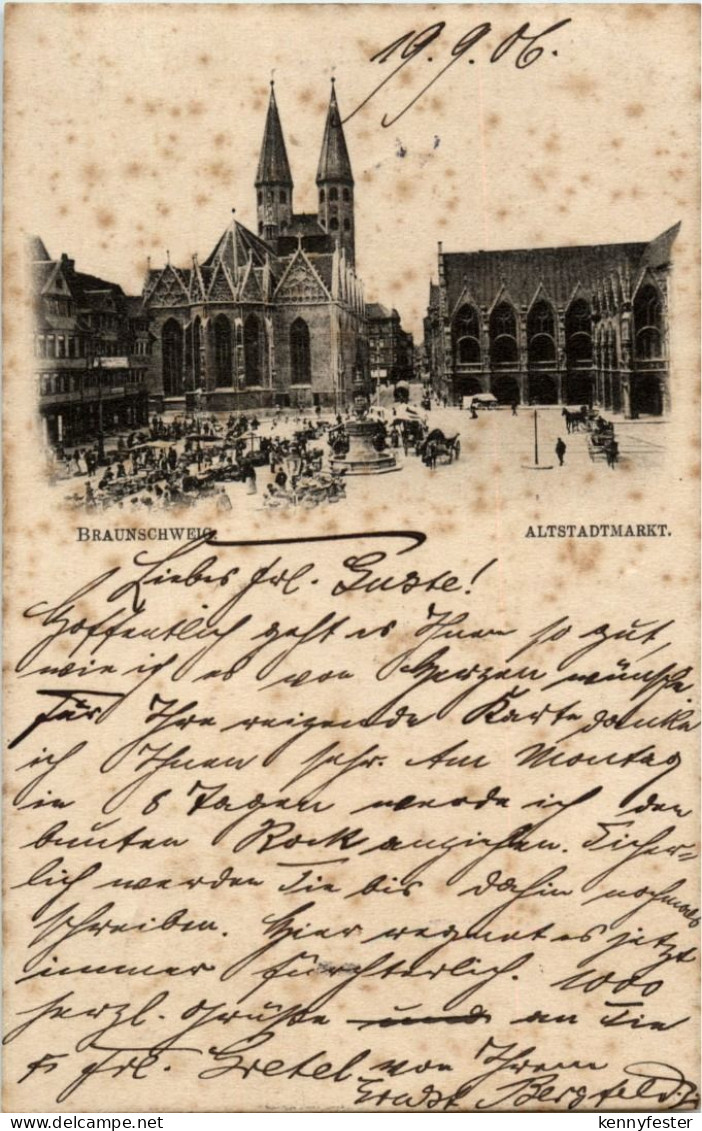 19.9.06.
BRAUNSCHWEIG.
ALTSTADTMARKT.
Liebes Frl. Guste!
Hoffentlich geht es Ihnen so gut,
wie ich es von Herzen wünsche.
Für Ihre reizende Karte danke
ich Ihnen sehr. Am Montag
in 8 Tagen werde ich den
bunten Rock anziehen. Sicher-
lich werden Sie bis dahin nochmals
schreiben. Hier regnet es jetzt
immer fürchterlich. 1000
herzl. Grüße und an Sie
Frl. Gretel von Ihrem
Ernst Bergfeld.
kennyfester